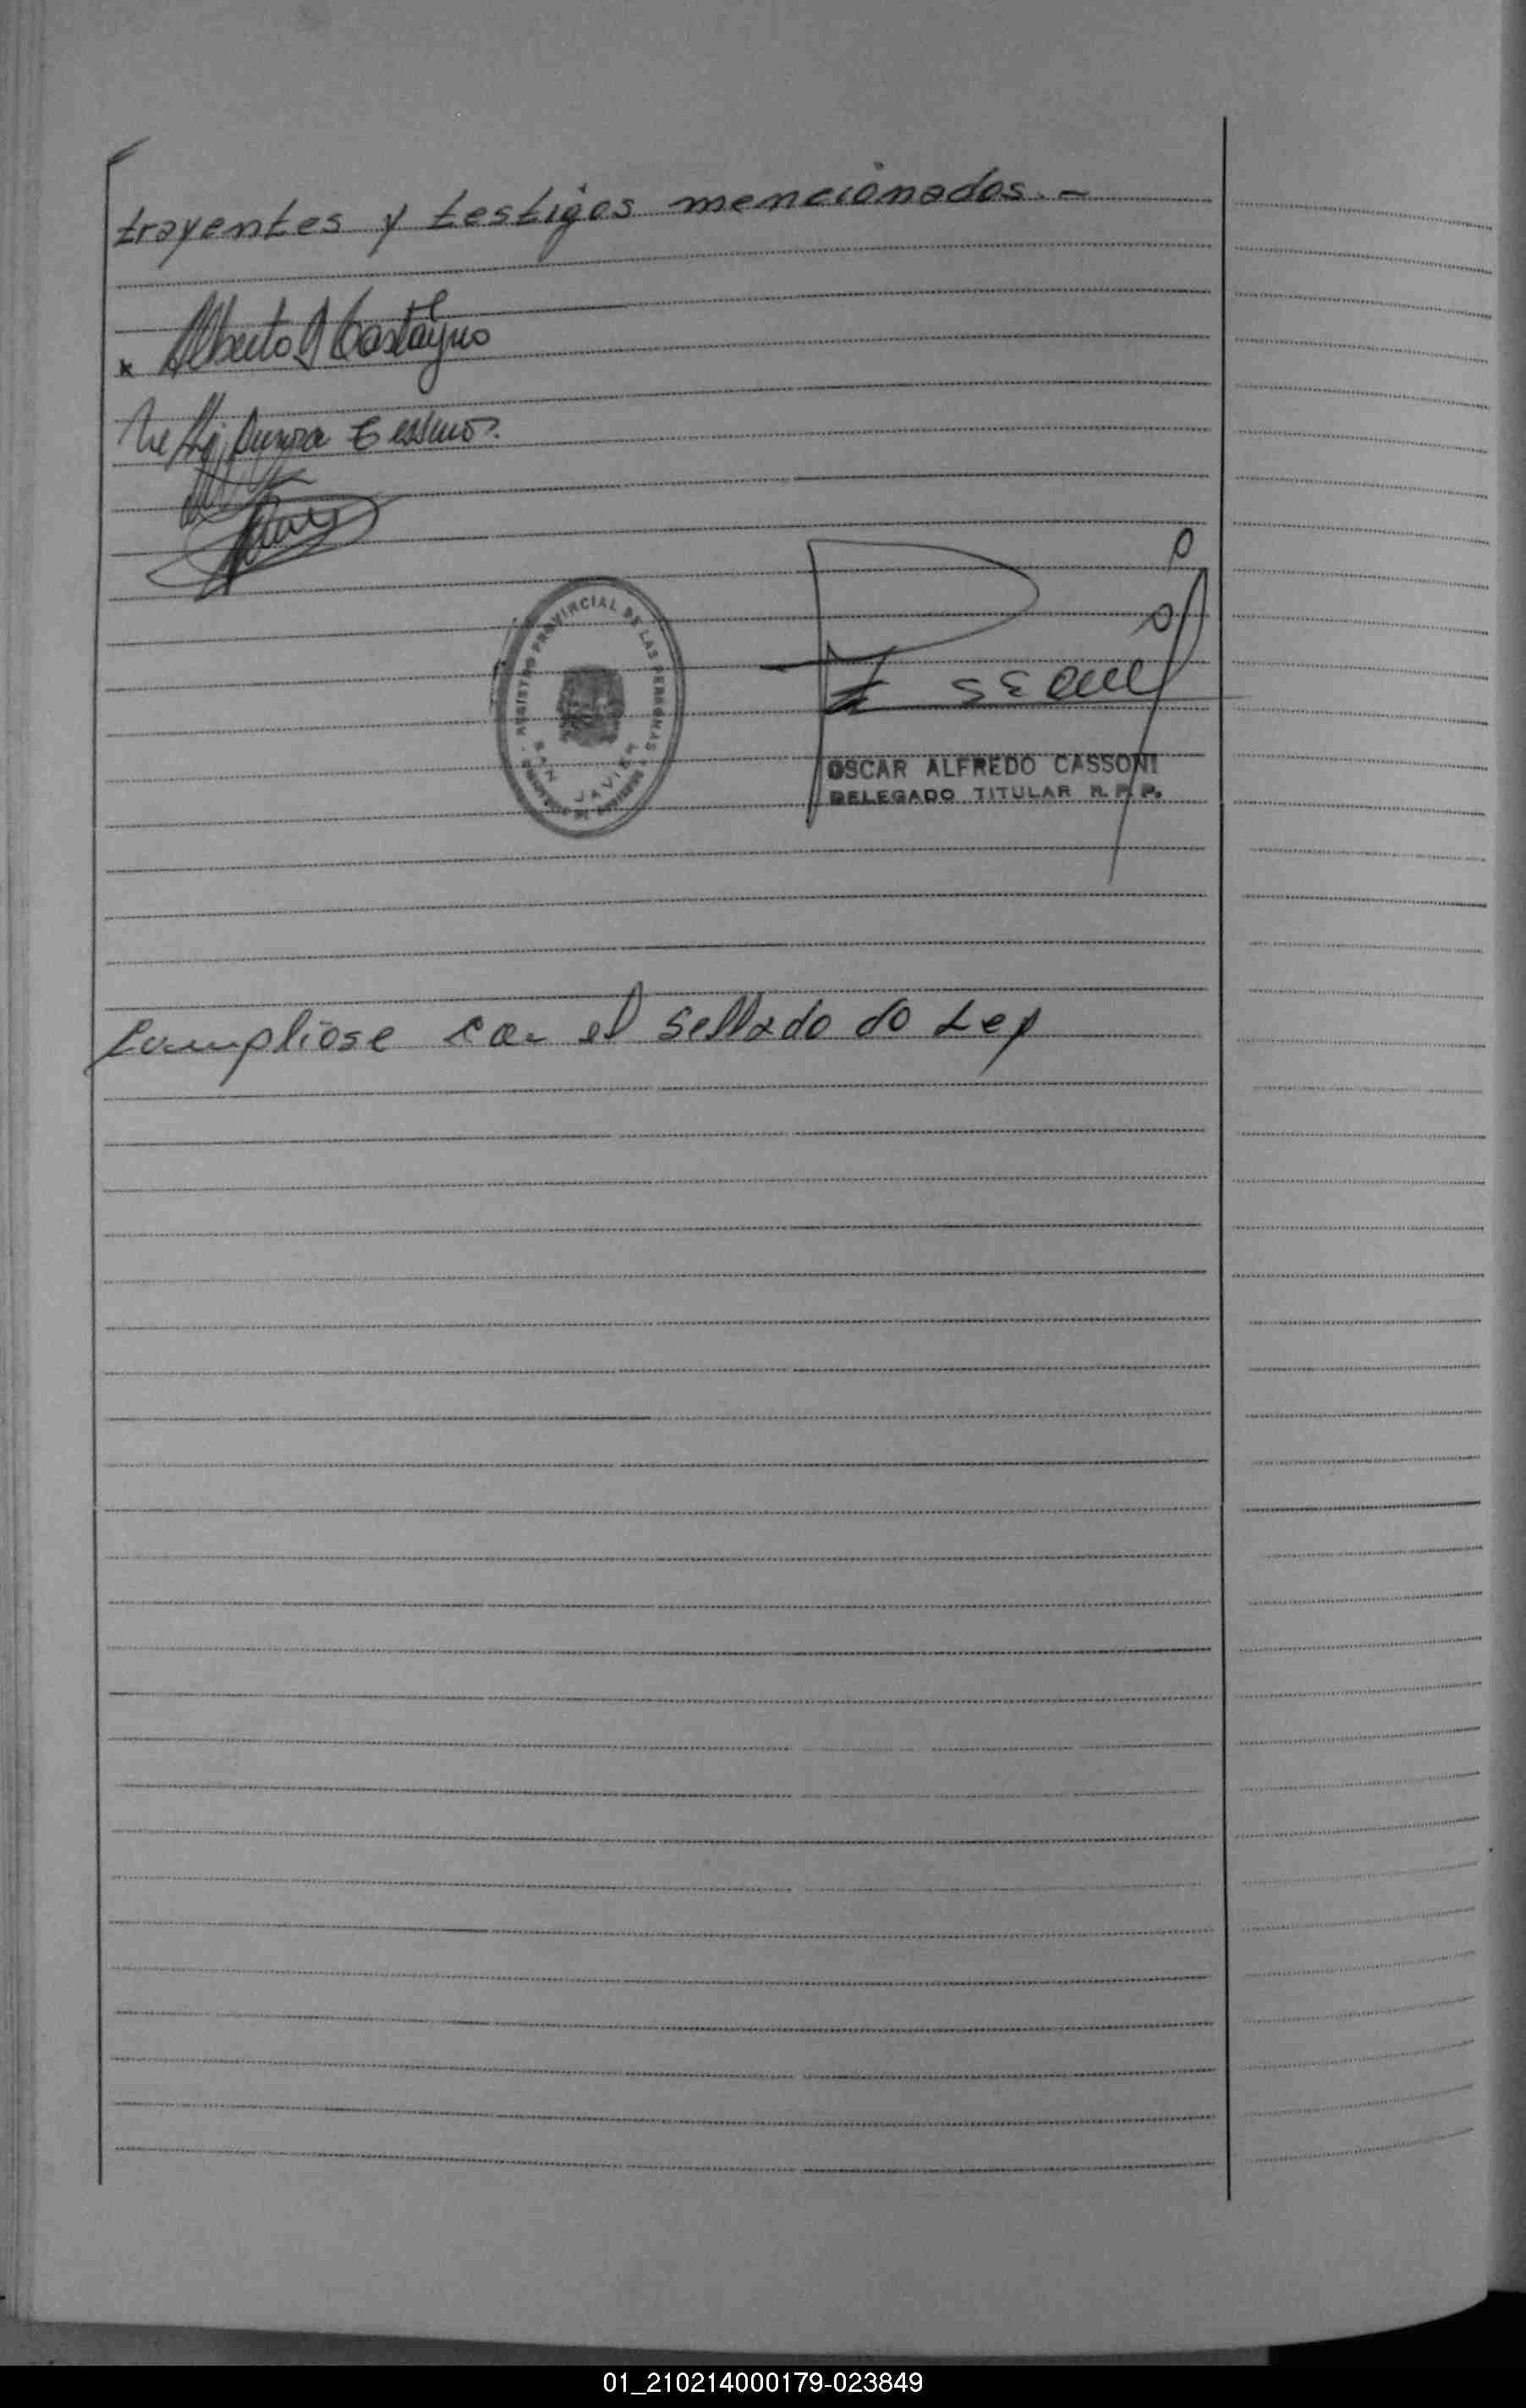 trayentes y testigos mencionados.-
x Alberto
Aurora
REGISTRO PROVINCIAL DE LAS PERSONAS
SAN JAVIER
OSCAR ALFREDO CASSONI
DELEGADO TITULAR R. P. P.
Cumpliose con el sellado de Ley
01_210214000179-023849